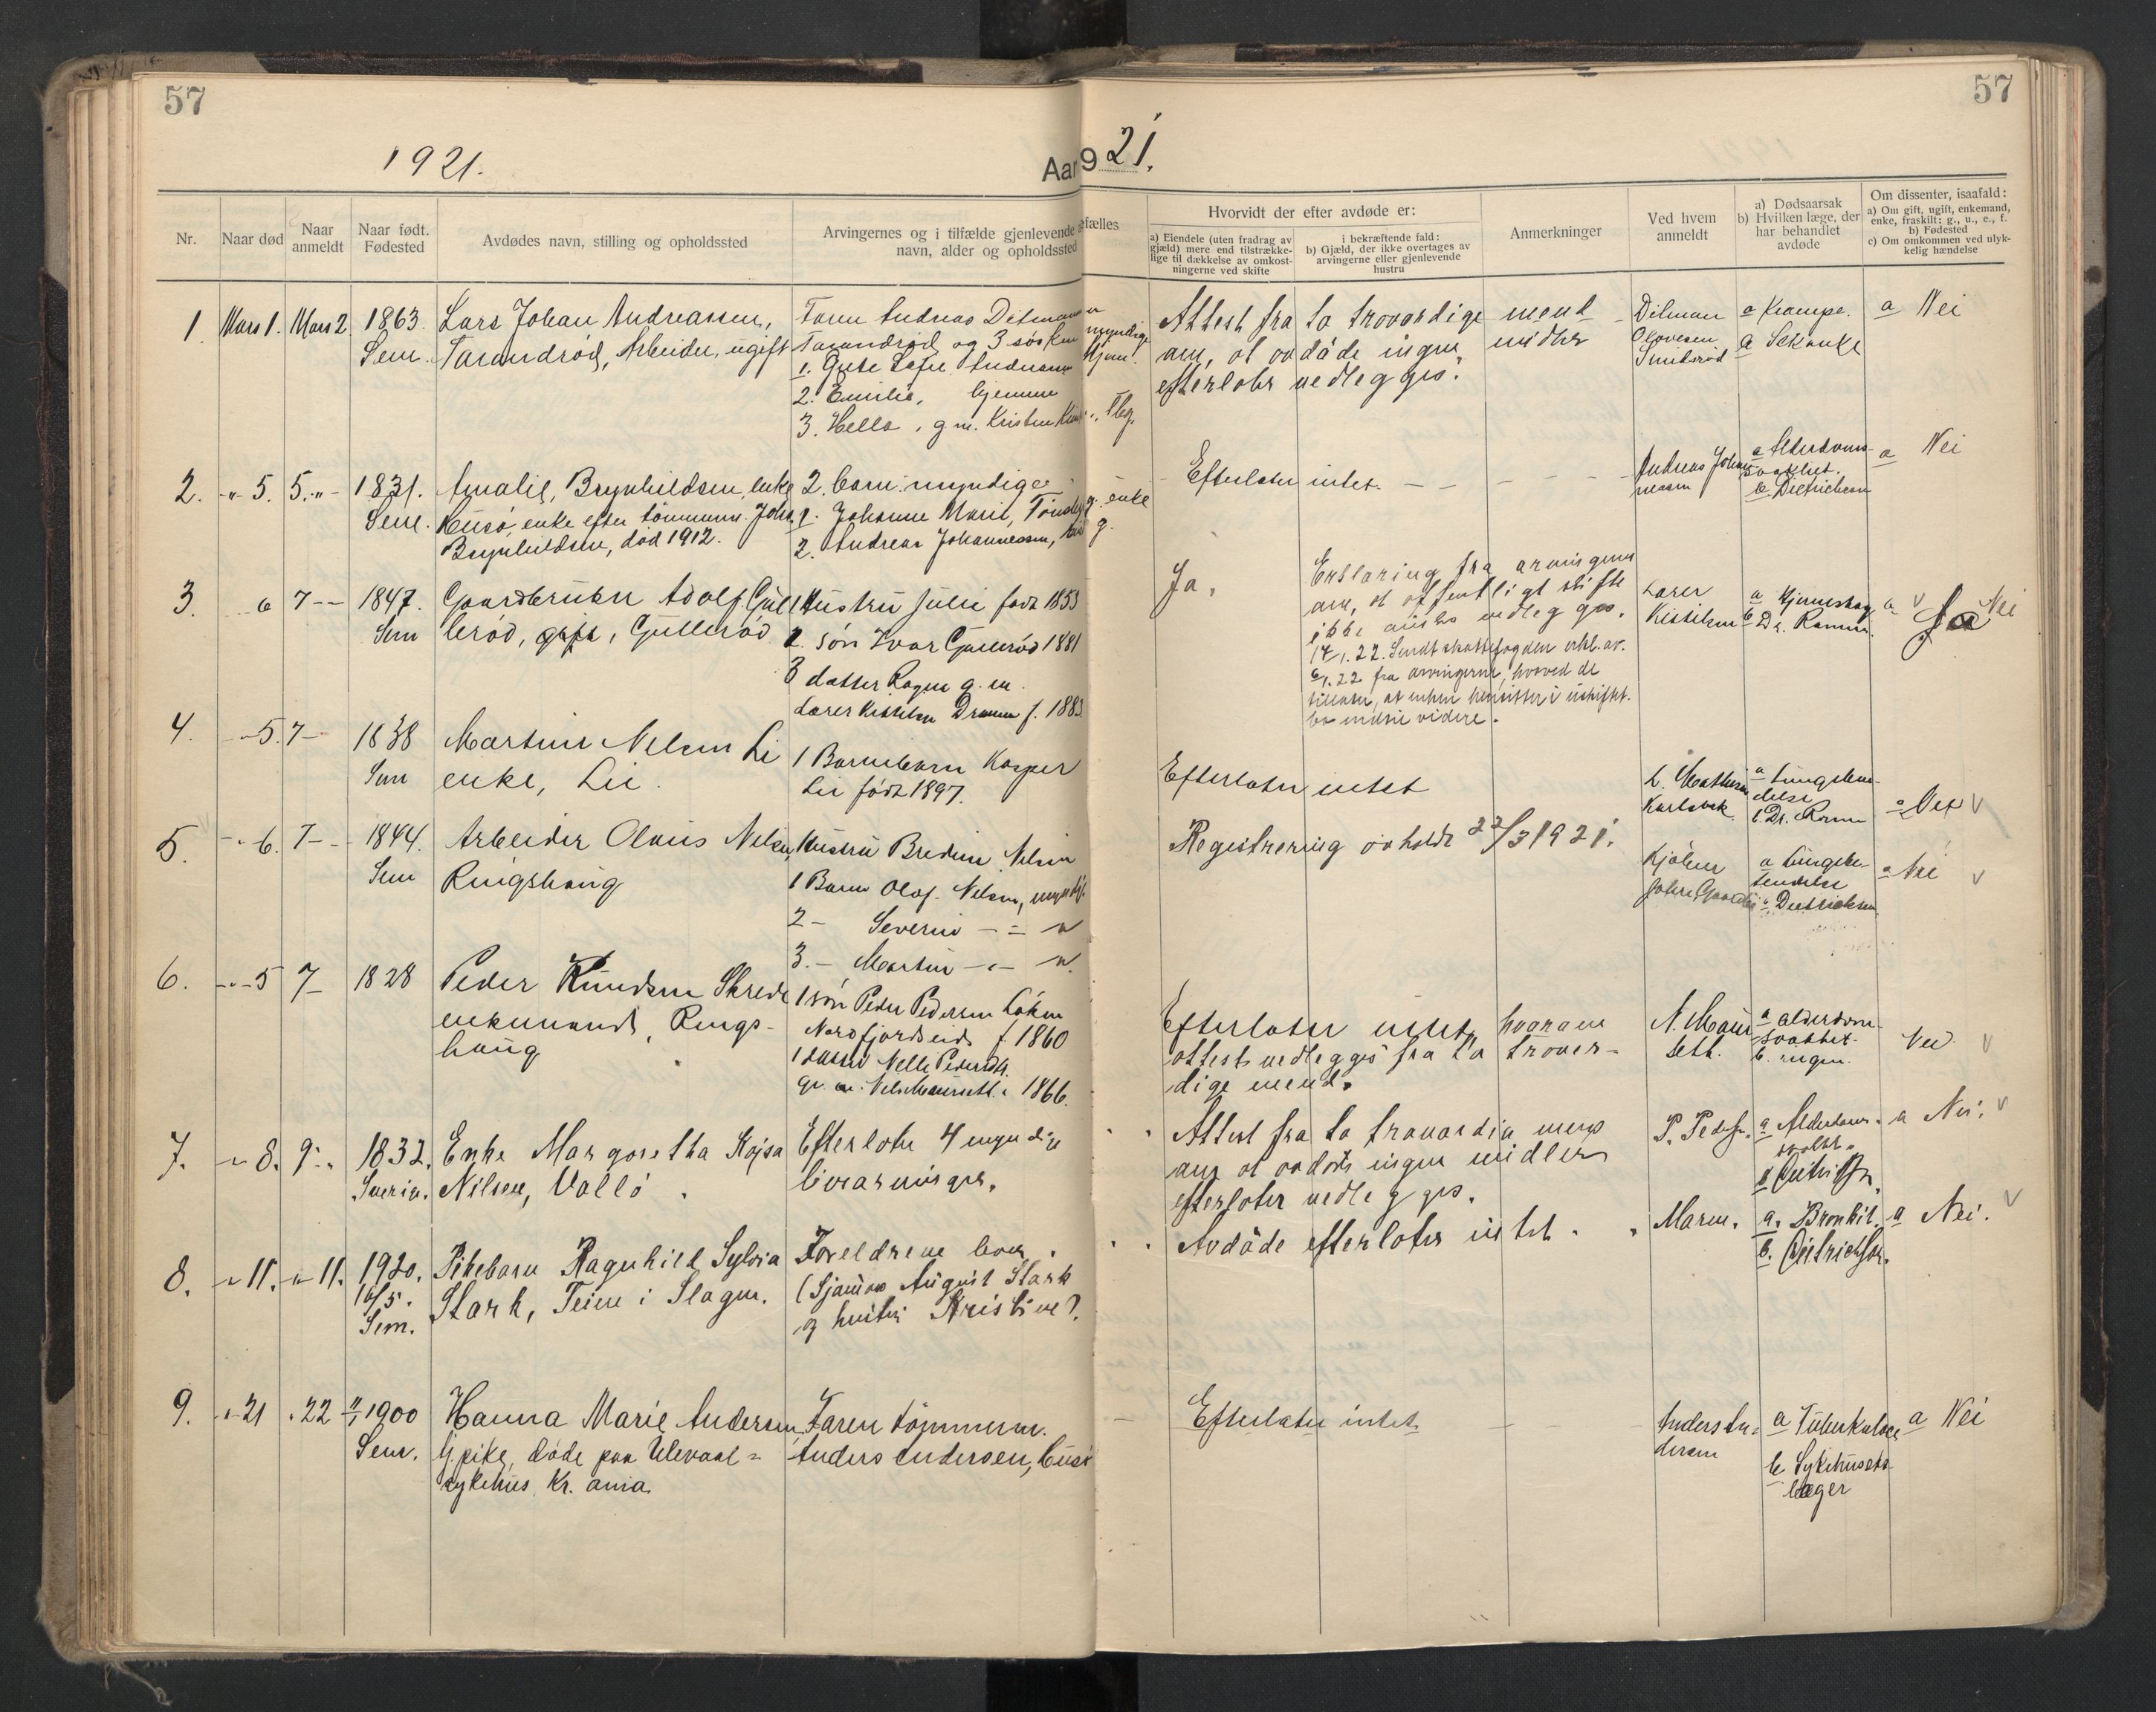 57
57
1921.
Aar
9 21.
Nr.
Naar død
Naar anmeldt
Naar født. Fødested
Avdødes navn, stilling og opholdssted
Arvingernes og i tilfælde gjenlevende
navn, alder og opholdssted
efælles
Hvorvidt der efter avdøde er:
a) Eiendele (uten fradrag av
gjæld) mere end tilstrække-
lige til dækkelse av omkost-
ningerne ved skifte
i bekræftende fald:
b) Gjæld, der ikke overtages av
arvingerne eller gjenlevende
hustru
Anmerkninger
Ved hvem
anmeldt
a) Dødsaarsak
b) Hvilken læge, der
har behandlet
avdøde
Om dissenter, isaafald:
a) Om gift, ugift, enkemand,
enke, fraskilt: g., u., e., f.
b) Fødested
c) Om omkommen ved ulyk-
kelig hændelse
1. Mars 1. Mars 2 1863.
Sem.
Lars Johan Andreassen,
Tarandrød, Arbeider, ugift
Tarandrød og 3 søsken
2. Emilie, hjemme
3. Hella, g.m. Kristen
myndige
hjem.
Tbg.
Attest fra to troværdige mend
om, at avdøde ingen midler
efterlater vedlegges.
Ditman
Olavesen
a Krampe.
a Nei
2. -"- 5. 5.-"- 1831.
Sem.
Amalie, Brynhildsen, enke
Husø, enke efter tømmerm. Johs.
Brynhildsen, død 1912.
2 barn myndige
1. Johanne Marie, Tønsbg. enke
2. Andreas Johannessen,
Efterlater intet.
Andreas Johan-
nessen
a Alderdoms-
svakhet.
b. Dietrichson
a Nei
3. 6 7 -"- 1847.
Sem
Gaardbruker Adolf Gull
lerød, gift, Gullerød
1 Hustru Julie født 1853
2 søn Ivar Gullerød 1881
3 datter Ragna g. m.
Lærer Kittilsen Drammen f. 1883
Ja,
Erklæring fra arvingerne
om, at offentligt skifte
ikke ønskes vedlegges.
17/1.22. Sendt skattefogden erkl. av.
6/1.22 fra arvingerne, hvorved de
tillater, at enken hensitter i uskiftet
bo indtil videre.
Lærer
Kittilsen
b Dr. Ramm.
a Nei
4. -"- 5. 7 - 1838
Sem
Martine Nilsen Lie
enke, Lie.
1 Barnebarn Kasper
Lie født 1897.
Efterlater intet
L. Mathisen
Karlsvik
a Lungebeten-
delse
b. Dr. Ramm
a Nei
5. -"- 6. 7 -"- 1844.
Sem
Arbeider Olaus Nilsen,
Ringshaug
Hustru Bredine Nilsen
1 Barn Olaf Nilsen, myndig
2 - Severin - " -
3. - Martin - " -
Registrering avholdt 22/3 1921.
a Lungebe-
tendelse
b Dietrichson
a Nei
6. -"- 5 7 - 1828
Peder Knudsen Skrede
enkemand, Rings-
haug
1 søn Peder Pedersen Løken
Nordfjordeid f 1860
1 datter Nelle Pedersdt.
g. m. Nils Maurseth. 1866.
Efterlater intet, hvorom
attest vedlegges fra to trover-
dige mend.
N. Maur-
seth.
a alderdom-
svakhet.
b. ingen.
Nei
7. -"- 8. 9 -"- 1832.
Sverig.
Enke Margaretha Kajsa
Nilsen, Vallø.
Efterlater 4 myndige
livsarvinger.
Attest fra to troværdige menn
om at avdøde ingen midler
efterlater vedlegges.
P. Pedersen.
a Alderdoms-
svakh.
b Dietrichson.
a Nei.
8. -"- 11. -"- 11. 1920.
16/5.
Sem.
Pikebarn Ragnhild Sylvia
Stark, Teine i Slagen.
Foreldrene lever.
(Sjømann August Stark
og hustru Kristine).
Avdøde efterlater intet.
Moren.
a. Bronkit.
b. Dietrichson.
a Nei.
9. -"- 21 " 22 1900
Sem.
Hanna Marie Andersen,
pike, døde paa Ulevaal
sykehus Kr. ania.
Faren tømmerm.
Anders Andersen, Husø
Efterlater intet
Anders An-
dersen
a Tuberkulose
b Sykehusets
læger
a Nei